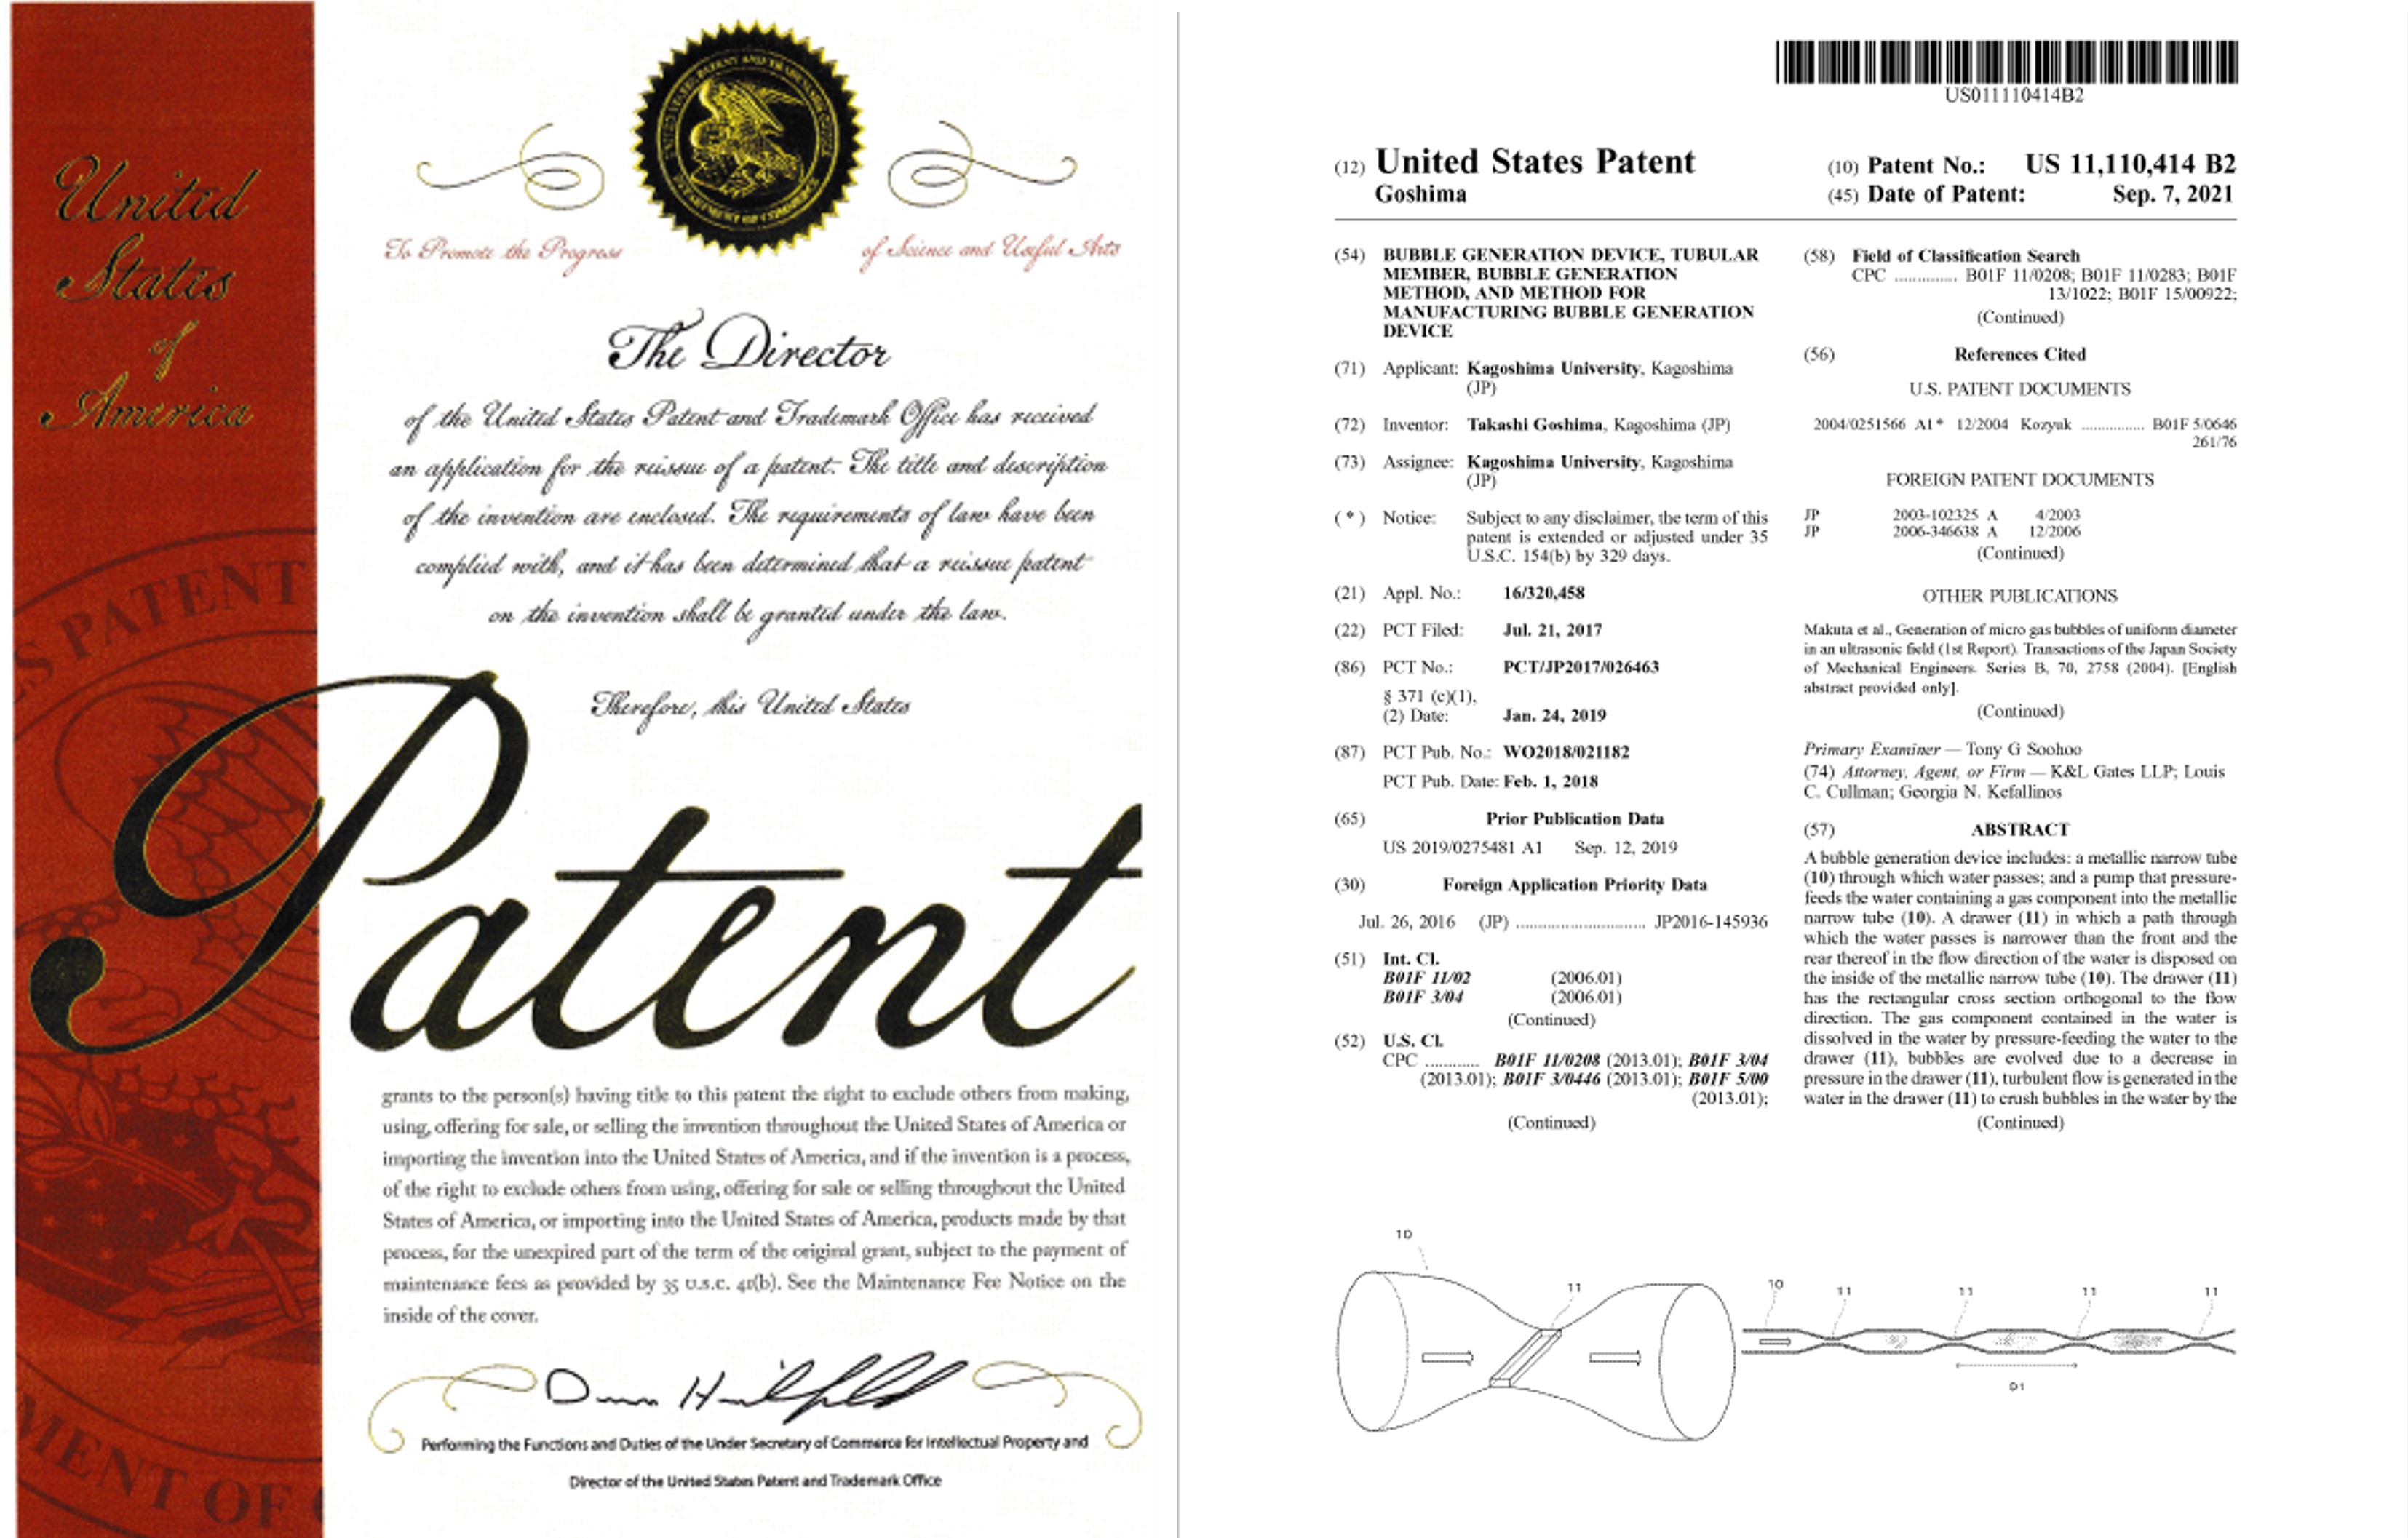 United
States
of
America
UNITED STATES PATENT AND TRADEMARK OFFICE
DEPARTMENT OF COMMERCE
To Promote the Progress
of Science and Useful Arts
The Director
of the United States Patent and Trademark Office has received
an application for the reissue of a patent. The title and description
of the invention are enclosed. The requirements of law have been
complied with, and it has been determined that a reissue patent
on the invention shall be granted under the law.
Therefore, this United States
Patent
grants to the person(s) having title to this patent the right to exclude others from making,
using, offering for sale, or selling the invention throughout the United States of America or
importing the invention into the United States of America, and if the invention is a process,
of the right to exclude others from using, offering for sale or selling throughout the United
States of America, or importing into the United States of America, products made by that
process, for the unexpired part of the term of the original grant, subject to the payment of
maintenance fees as provided by 35 U.S.C. 41(b). See the Maintenance Fee Notice on the
inside of the cover.
Performing the Functions and Duties of the Under Secretary of Commerce for Intellectual Property and
Director of the United States Patent and Trademark Office
ES PATENT
MENT OF
US011110414B2
(12) United States Patent
Goshima
(10) Patent No.: US 11,110,414 B2
(45) Date of Patent: Sep. 7, 2021
(54) BUBBLE GENERATION DEVICE, TUBULAR
MEMBER, BUBBLE GENERATION
METHOD, AND METHOD FOR
MANUFACTURING BUBBLE GENERATION
DEVICE
(71) Applicant: Kagoshima University, Kagoshima
(JP)
(72) Inventor: Takashi Goshima, Kagoshima (JP)
(73) Assignee: Kagoshima University, Kagoshima
(JP)
( * ) Notice: Subject to any disclaimer, the term of this
patent is extended or adjusted under 35
U.S.C. 154(b) by 329 days.
(21) Appl. No.: 16/320,458
(22) PCT Filed: Jul. 21, 2017
(86) PCT No.: PCT/JP2017/026463
§ 371 (c)(1),
(2) Date: Jan. 24, 2019
(87) PCT Pub. No.: WO2018/021182
PCT Pub. Date: Feb. 1, 2018
(65) Prior Publication Data
US 2019/0275481 A1 Sep. 12, 2019
(30) Foreign Application Priority Data
Jul. 26, 2016 (JP) ............................... JP2016-145936
(51) Int. Cl.
B01F 11/02 (2006.01)
B01F 3/04 (2006.01)
(Continued)
(52) U.S. Cl.
CPC ............ B01F 11/0208 (2013.01); B01F 3/04
(2013.01); B01F 3/0446 (2013.01); B01F 5/00
(2013.01);
(Continued)
(58) Field of Classification Search
CPC .............. B01F 11/0208; B01F 11/0283; B01F
13/1022; B01F 15/00922;
(Continued)
(56) References Cited
U.S. PATENT DOCUMENTS
2004/0251566 A1* 12/2004 Kozyuk ................ B01F 5/0646
261/76
FOREIGN PATENT DOCUMENTS
JP 2003-102325 A 4/2003
JP 2006-346638 A 12/2006
(Continued)
OTHER PUBLICATIONS
Makuta et al., Generation of micro gas bubbles of uniform diameter
in an ultrasonic field (1st Report). Transactions of the Japan Society
of Mechanical Engineers. Series B, 70, 2758 (2004). [English
abstract provided only].
(Continued)
Primary Examiner — Tony G Soohoo
(74) Attorney, Agent, or Firm — K&L Gates LLP; Louis
C. Cullman; Georgia N. Kefallinos
(57) ABSTRACT
A bubble generation device includes: a metallic narrow tube
(10) through which water passes; and a pump that pressure-
feeds the water containing a gas component into the metallic
narrow tube (10). A drawer (11) in which a path through
which the water passes is narrower than the front and the
rear thereof in the flow direction of the water is disposed on
the inside of the metallic narrow tube (10). The drawer (11)
has the rectangular cross section orthogonal to the flow
direction. The gas component contained in the water is
dissolved in the water by pressure-feeding the water to the
drawer (11), bubbles are evolved due to a decrease in
pressure in the drawer (11), turbulent flow is generated in the
water in the drawer (11) to crush bubbles in the water by the
(Continued)
10
11
10
11
11
11
11
D1